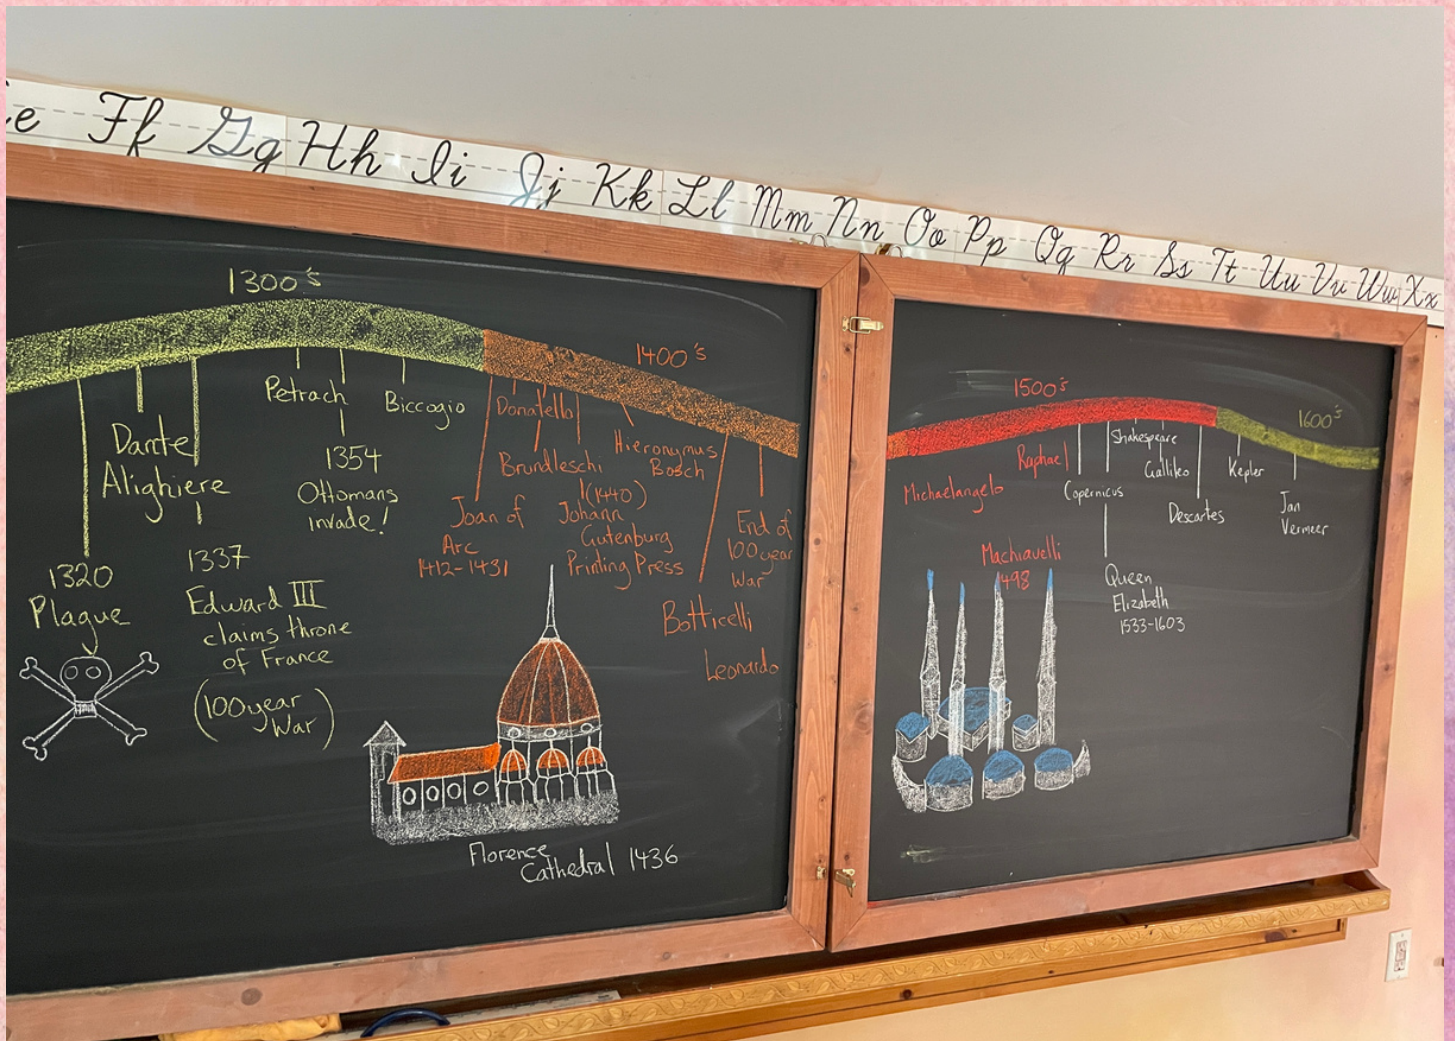 e Ff Gg Hh Ii Jj Kk Ll Mm Nn Oo Pp Qq Rr Ss Tt Uu Vv Ww Xx
1300's
Petrach
Biccogio
Dante
Alighiere
1354
Ottomans
invade!
1320
Plague
1337
Edward III
claims throne
of France
(100 year
War)
1400's
Donatello
Brundleschi
Hieronymus
Bosch
Joan of
Arc
1412-1431
(1440)
Johann
Gutenburg
Printing Press
End of
100 year
War
Botticelli
Leonardo
Florence
Cathedral 1436
1500's
Michaelangelo
Raphael
Shakespeare
Copernicus
Gallileo
Descartes
Machiavelli
1498
Queen
Elizabeth
1533-1603
1600's
Kepler
Jan
Vermeer